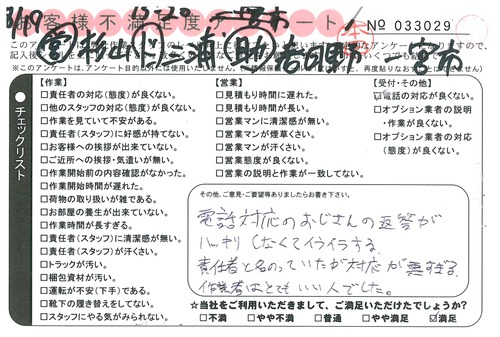 お客様不満足度アンケート
No 033029
※このアンケートは、アンケート目的以外には使用いたしません。
チェックリスト
【作業】
□責任者の対応(態度)が良くない。
□他のスタッフの対応(態度)が良くない。
□作業を見ていて不安がある。
□責任者(スタッフ)に好感が持てない。
□お客様への挨拶が出来ていない。
□ご近所への挨拶・気遣いが無い。
□作業開始前の内容確認がなかった。
□作業開始時間が遅れた。
□荷物の取り扱いが雑である。
□お部屋の養生が出来ていない。
□作業時間が長すぎる。
□責任者(スタッフ)に清潔感が無い。
□責任者(スタッフ)が汗くさい。
□トラックが汚い。
□梱包資材が汚い。
□運転が不安(下手)である。
□靴下の履き替えをしてない。
□スタッフにやる気がみられない。
【営業】
□見積もり時間に遅れた。
□見積もり時間が長い。
□営業マンに清潔感が無い。
□営業マンが煙草くさい。
□営業マンが汗くさい。
□営業態度が良くない。
□営業の説明と作業が一致してない。
【受付・その他】
☑電話の対応が良くない。
□オプション業者の説明
・作業が良くない。
□オプション業者の対応
(態度)が良くない。
その他、ご意見・ご要望等ありましたらお書き下さい。
電話対応のおじさんの返答が
ハッキリしなくてイライラする。
責任者と名のっていたが対応が悪すぎる。
作業者はとてもいい人でした。
☆当社をご利用いただきまして、ご満足いただけたでしょうか?
□不満 □やや不満 □普通 □やや満足 ☑満足